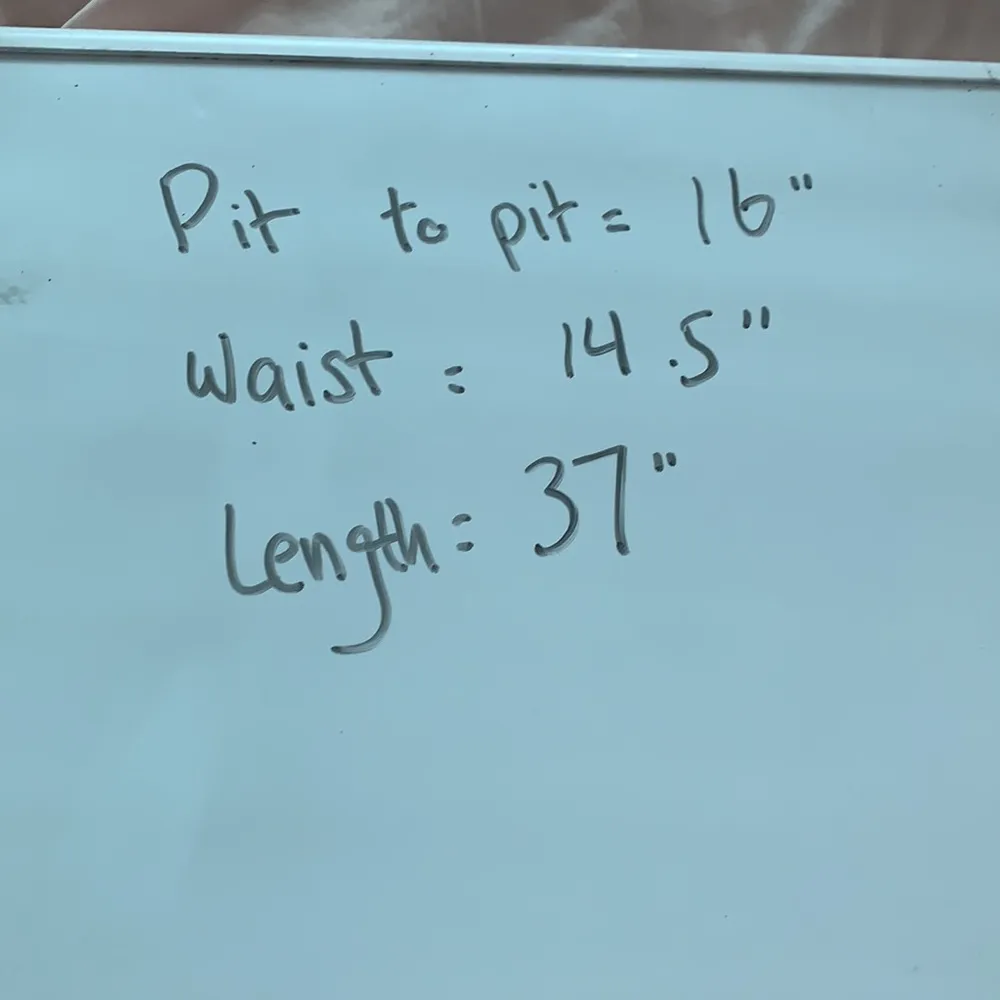 Pit to pit = 16"
Waist = 14.5"
Length = 37"